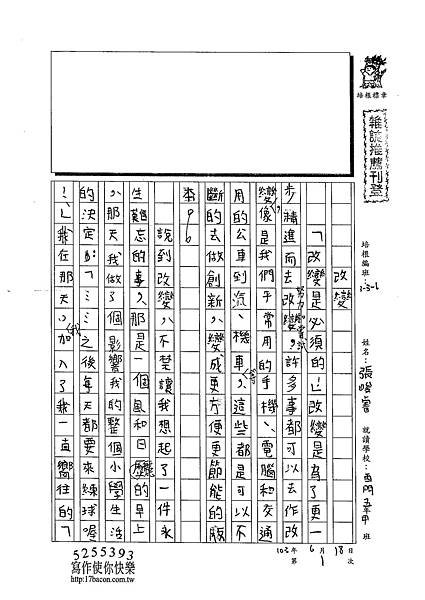 培根標章
雜誌推薦刊登
培根編班
3-3-1
姓名：張
就讀學校：西門 班
103年6月18日
第1次
改變
「改變是必須的」改變是為了更一
步精進而去改變，許多事都可以去作改
努力和嘗試
變，像是我們平常用的手機、電腦和交通
用的公車到汽、機車，這些都是可以不
(等)
斷的去做創新，變成更方便更節能的版
本。
說到改變，不禁讓我想起了一件永
生難忘的事，那是一個風和日麗的早上
，那天我做了個影響我的整個小學生活
的決定：「……之後每天都要來練球喔
！」我在那天，加入了我一直嚮往的「
(我)
5255393
寫作使你快樂
http://17bacon.com.tw